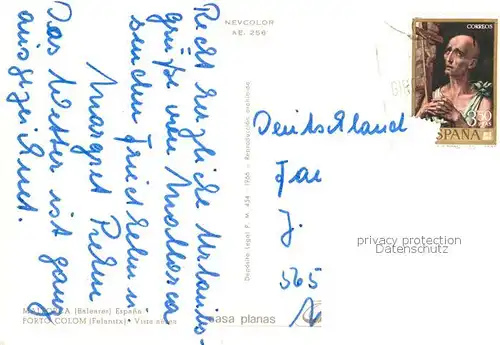 NEVCOLOR
AE. 256
Recht herzliche Urlaubs-
grüße von Mallorca
senden Friedhelm u
Margret
Das Wetter ist ganz
ausgezeichnet.
Depósito Legal P. M. 454 - 1968 - Reproducción prohibida
MALLORCA (Baleares) España
PORTO COLOM (Felanitx) Vista aérea
casa planas
CORREOS
ESPAÑA
Deutschland
J.
565
privacy protection
Datenschutz